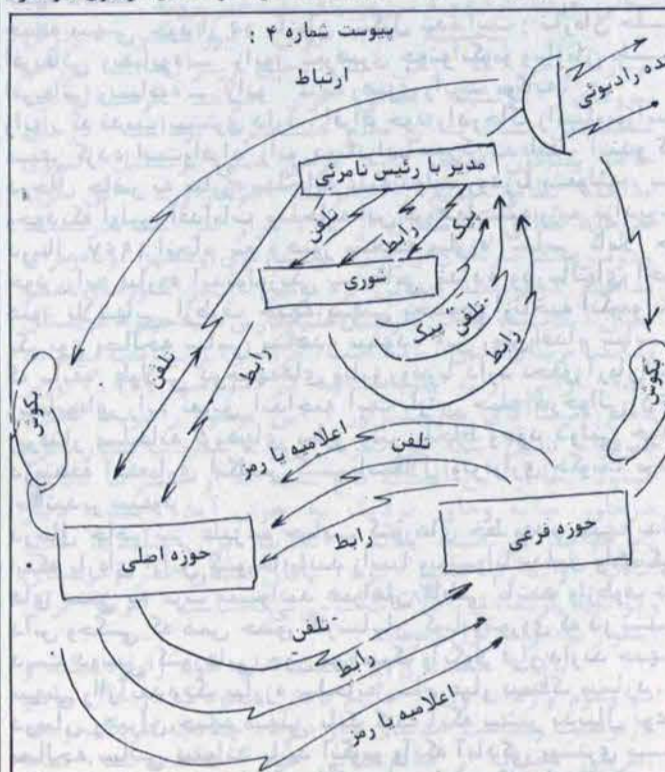 پیوست شماره ۴ :
ارتباط
نده رادیوئی
مدیر با رئیس نامرئی
تلفن
رابط
پیک
شوری
تلفن
پیک
رابط
تلفن
رابط
بگوش
بگوش
اعلامیه یا رمز
تلفن
رابط
حوزه اصلی
حوزه فرعی
تلفن
رابط
اعلامیه یا رمز